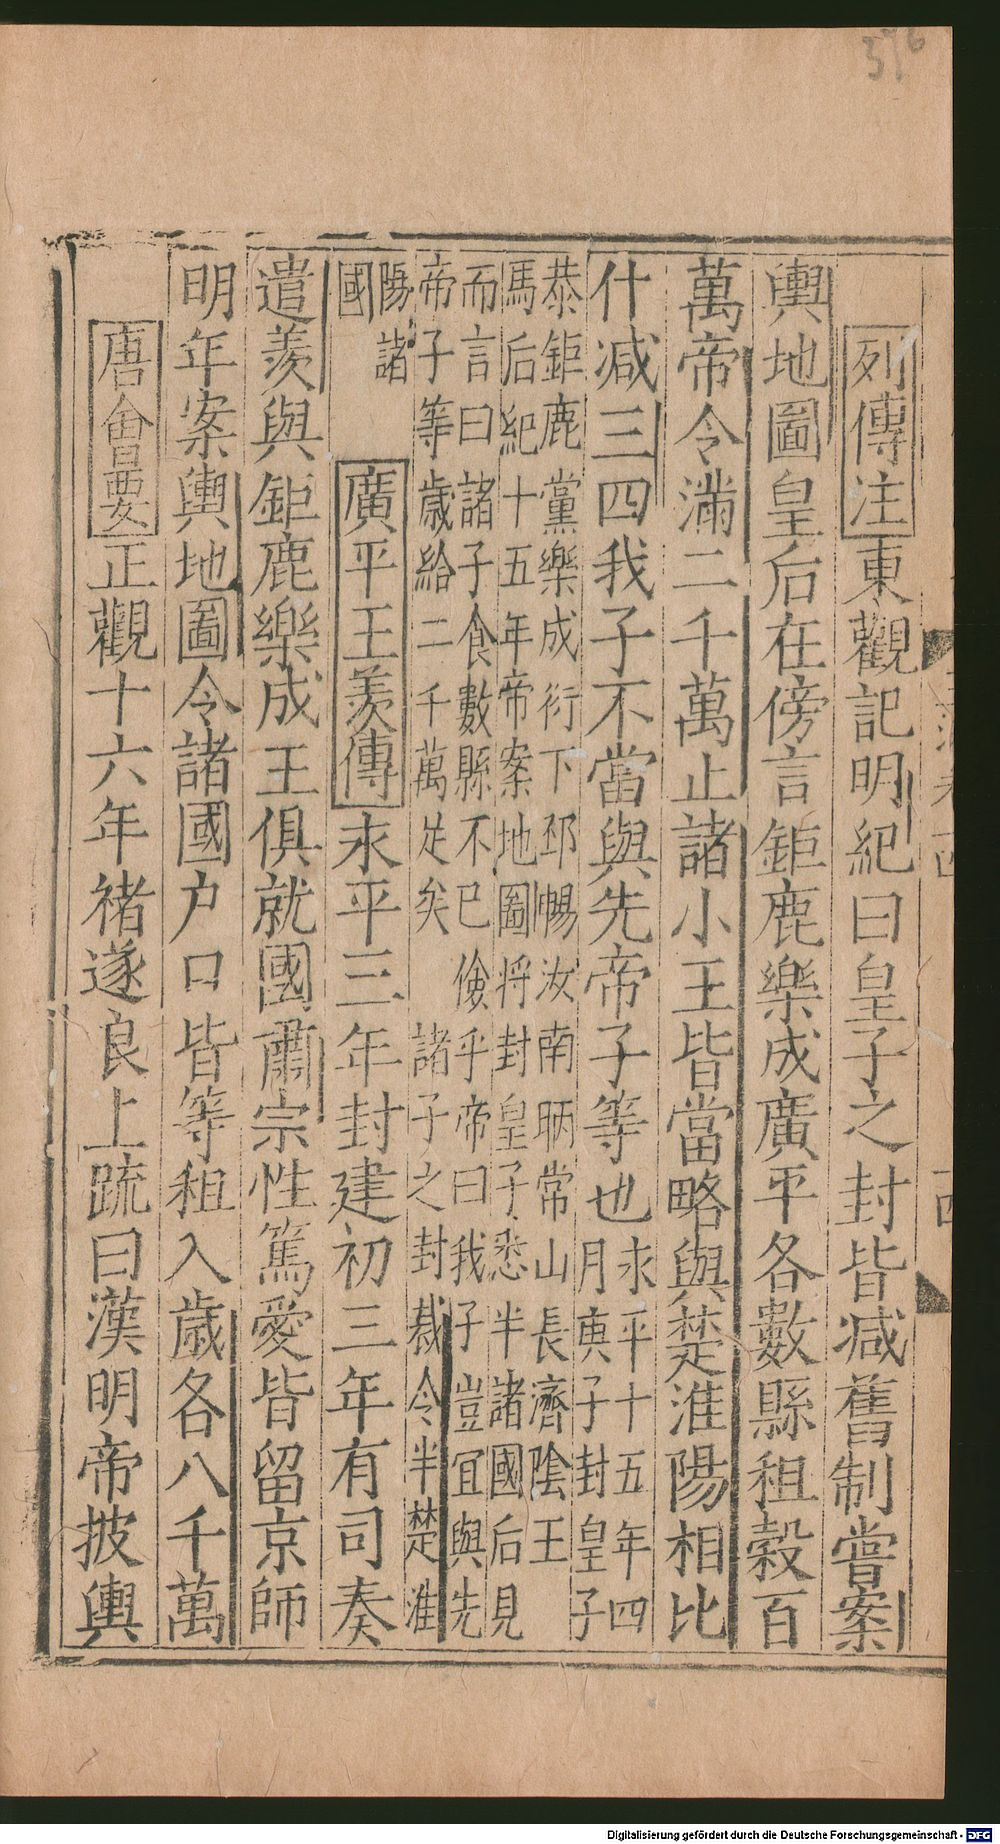 列傳注東觀記明紀曰皇子之封皆減舊制嘗案
輿地圖皇后在傍言鉅鹿樂成廣平各數縣租穀百
萬帝令滿二千萬止諸小王皆當略與楚淮陽相比
什減三四我子不當與先帝子等也
永平十五年四
月庚子封皇子
恭鉅鹿黨樂成衍下邳暢汝南昞常山長濟陰王
馬后紀十五年帝案地圖将封皇子悉半諸國后見
而言曰諸子食數縣不已儉乎帝曰我子豈宜與先
帝子等歳給二千萬足矣 諸子之封裁令半楚淮
陽諸
國
廣平王羨傳永平三年封建初三年有司奏
遣羨與鉅鹿樂成王俱就國肅宗性篤愛皆留京師
明年案輿地圖令諸國户口皆等租入歳各八千萬
唐會要正觀十六年禇遂良上疏曰漢明帝披輿
376
Digitalisierung gefördert durch die Deutsche Forschungsgemeinschaft - DFG